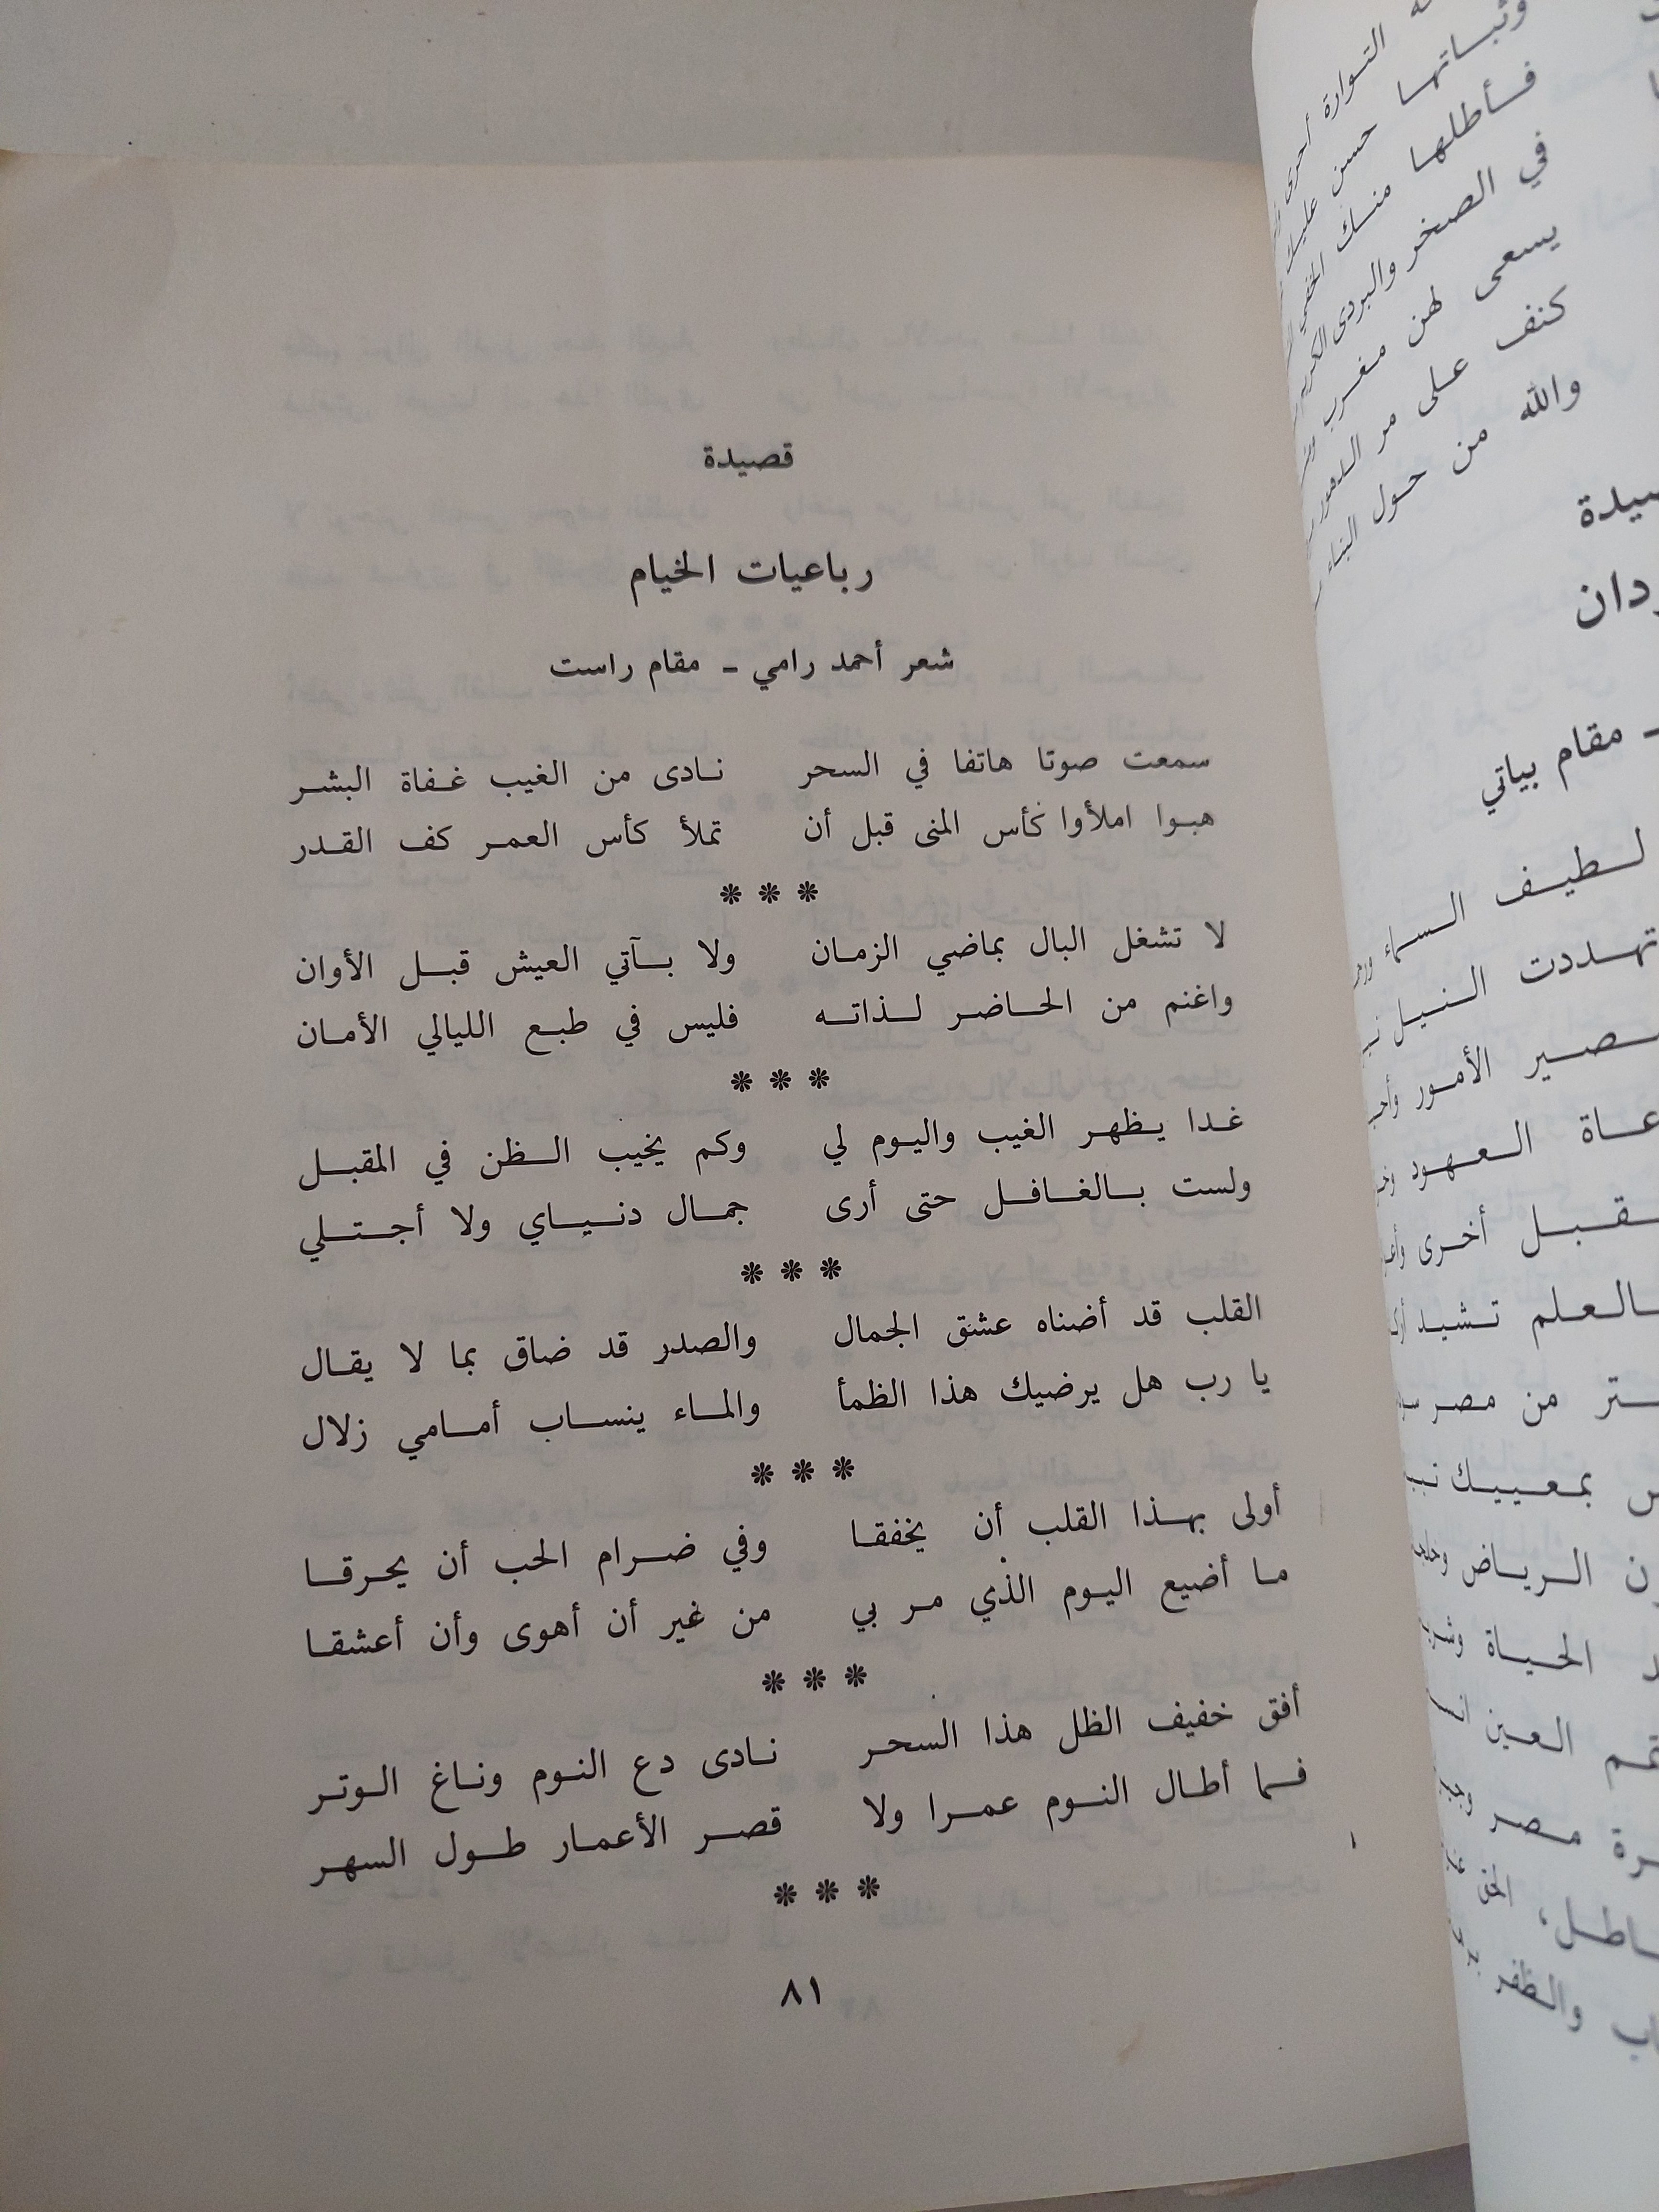 قصيدة
رباعيات الخيام
شعر أحمد رامي - مقام راست
سمعت صوتا هاتفا في السحر نادى من الغيب غفاة البشر
هبوا املأوا كأس المنى قبل أن تملأ كأس العمر كف القدر
* * *
لا تشغل البال بماضي الزمان ولا بآتي العيش قبل الأوان
واغنم من الحاضر لذاته فليس في طبع الليالي الأمان
* * *
غدا يظهر الغيب واليوم لي وكم يخيب الظن في المقبل
ولست بالغافل حتى أرى جمال دنياي ولا أجتلي
* * *
القلب قد أضناه عشق الجمال والصدر قد ضاق بما لا يقال
يا رب هل يرضيك هذا الظمأ والماء ينساب أمامي زلال
* * *
أولى بهذا القلب أن يخفقا وفي ضرام الحب أن يحرقا
ما أضيع اليوم الذي مر بي من غير أن أهوى وأن أعشقا
* * *
أفق خفيف الظل هذا السحر نادى دع النوم وناغ الوتر
فما أطال النوم عمرا ولا قصر الأعمار طول السهر
* * *
٨١
التوارة أحرى
وثباتها حسن عليك
فأطلها منك الخفي
في الصخر والبردى الكريم
يسعى لهن مغرب
كنف على مر الدهور
والله من حول البناء
- مقام بياتي
لطيف السماء
تهددت النيل
الأمور
العهود
أخرى
تشيد
من مصر
بمعييك
الرياض
الحياة
العين
مصر
الحق
والظفر